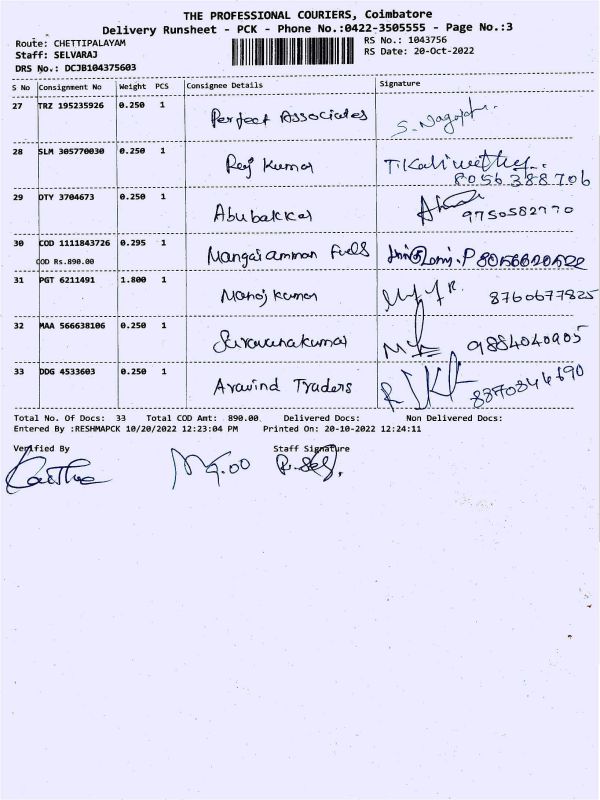 THE PROFESSIONAL COURIERS, Coimbatore
Delivery Runsheet - PCK - Phone No.:0422-3505555 - Page No.:3
Route: CHETTIPALAYAM
Staff: SELVARAJ
DRS No.: DCJB104375603
RS No.: 1043756
RS Date: 20-Oct-2022
S No Consignment No Weight PCS Consignee Details Signature
27 TRZ 195235926 0.250 1 Perfect Associates S. Nagaraj
28 SLM 305770030 0.250 1 Raj Kumar
8056388706
29 DTY 3704673 0.250 1 Abubakkar 9750582770
30 COD 1111843726 0.295 1 Mangaiamman Fuels
COD Rs.890.00
31 PGT 6211491 1.800 1 Manoj kumar 8760677825
32 MAA 566638106 0.250 1 Saravanakumar 9884040905
33 DDG 4533603 0.250 1 Aravind Traders
Total No. Of Docs: 33 Total COD Amt: 890.00 Delivered Docs: Non Delivered Docs:
Entered By :RESHMAPCK 10/20/2022 12:23:04 PM Printed On: 20-10-2022 12:24:11
Verified By Staff Signature